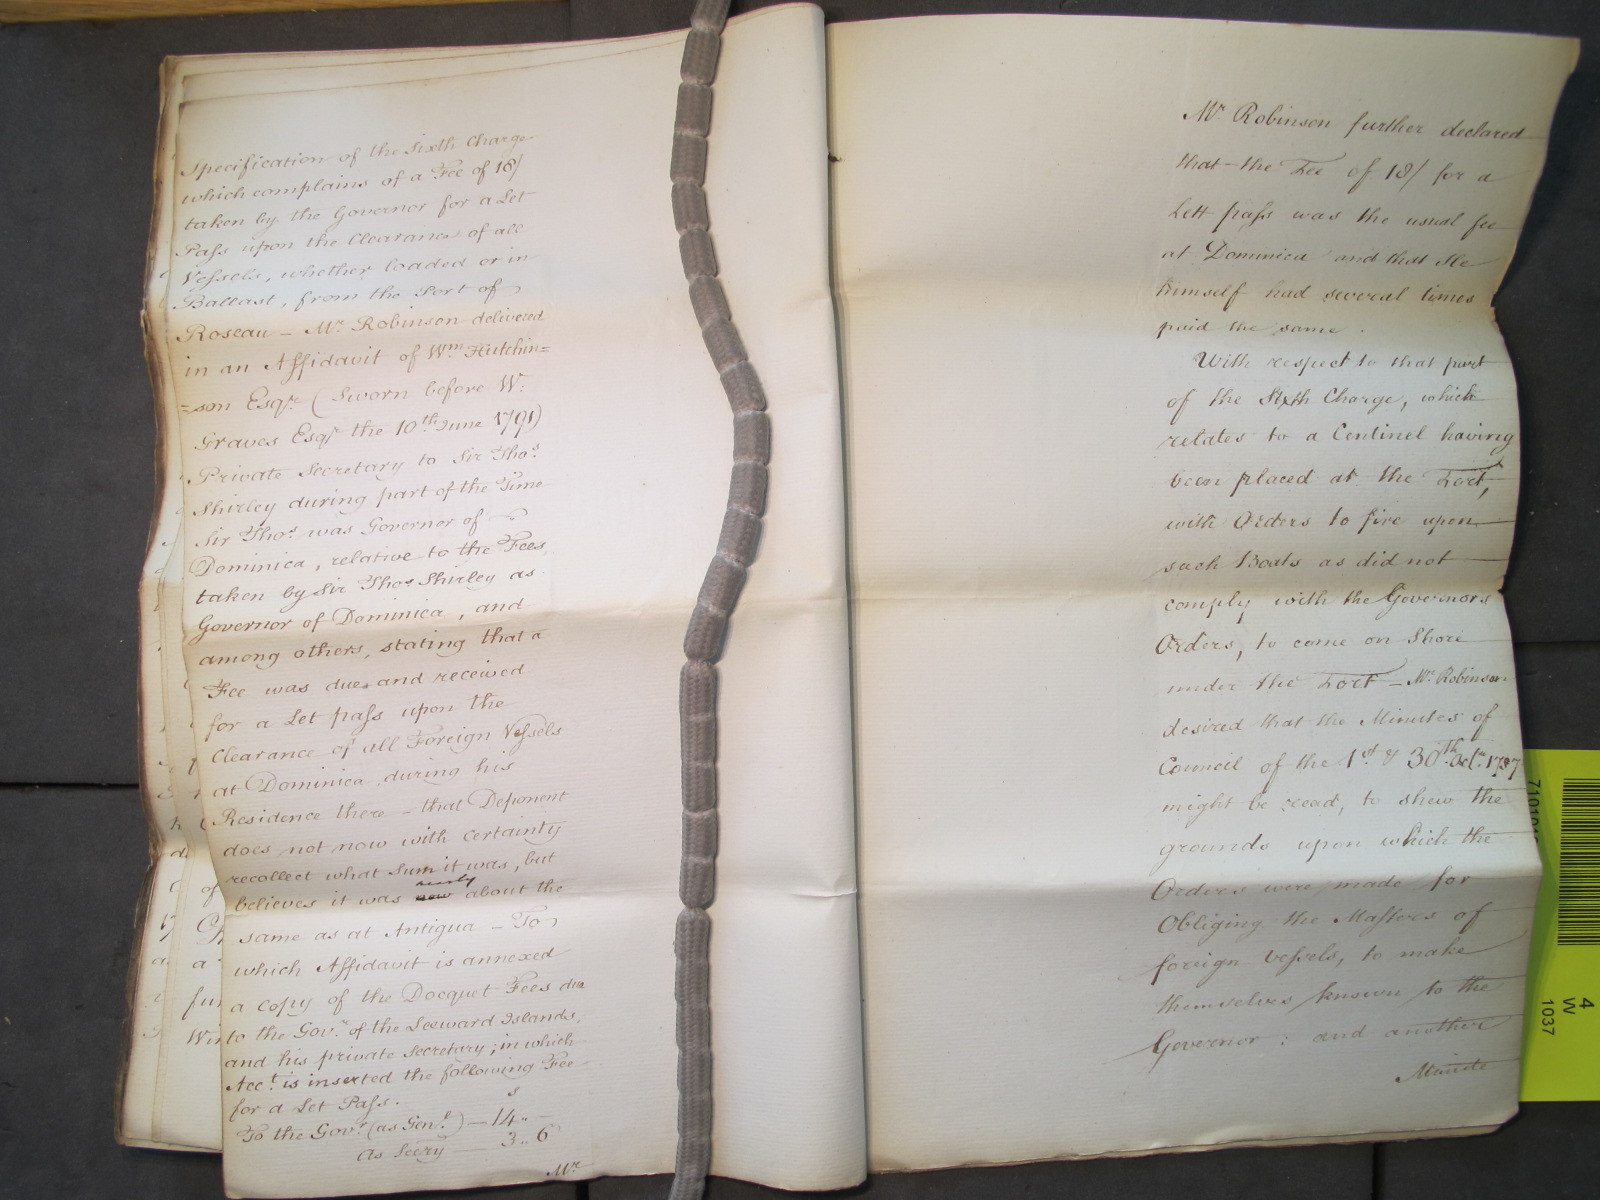 Specification of the Sixth Charge
which complains of a Fee of 18/
taken by the Governor for a Let
Pass upon the Clearance of all
Vessels, whether loaded or in
Ballast, from the Port of
Roseau – Mr Robinson delivered
in an Affidavit of Wm Hutchin=
=son Esqr. (Sworn before W:
Graves Esqr the 10th June 1791)
Private Secretary to Sir Thos.
Shirley during part of the Time
Sir Thos. was Governor of
Dominica, relative to the Fees
taken by Sir Thos Shirley as
Governor of Dominica, and
among others, stating that a
Fee was due, and received
for a Let pass upon the
Clearance of all Foreign Vessels
at Dominica, during his
Residence there – that Deponent
does not now with certainty
recollect what Sum it was, but
believes it was nearly about the
same as at Antigua – To
which Affidavit is annexed
a copy of the Docquet Fees due
to the Govr. of the Leeward Islands,
and his private Secretary; in which
Acct. is inserted the following Fee
for a Let Pass.
s
To the Govr. (as Genl.) – 14.. –
as Secry – 3.. 6
Mr
Mr Robinson further declared
that the Fee of 18/ for a
Lett pass was the usual fee
at Dominica and that He
himself had several times
paid the same.
With respect to that part
of the Sixth Charge, which
relates to a Centinel having
been placed at the Fort,
with Orders to fire upon
such Boats as did not
comply with the Governors
Orders, to come on Shore
under the Fort – Mr. Robinson
desired that the Minutes of
Council of the 1st & 30th Octr. 1787
might be read, to shew the
grounds upon which the
Orders were made for
Obliging the Masters of
foreign Vessels, to make
themselves known to the
Governor: and another
Minute
4
W
1037